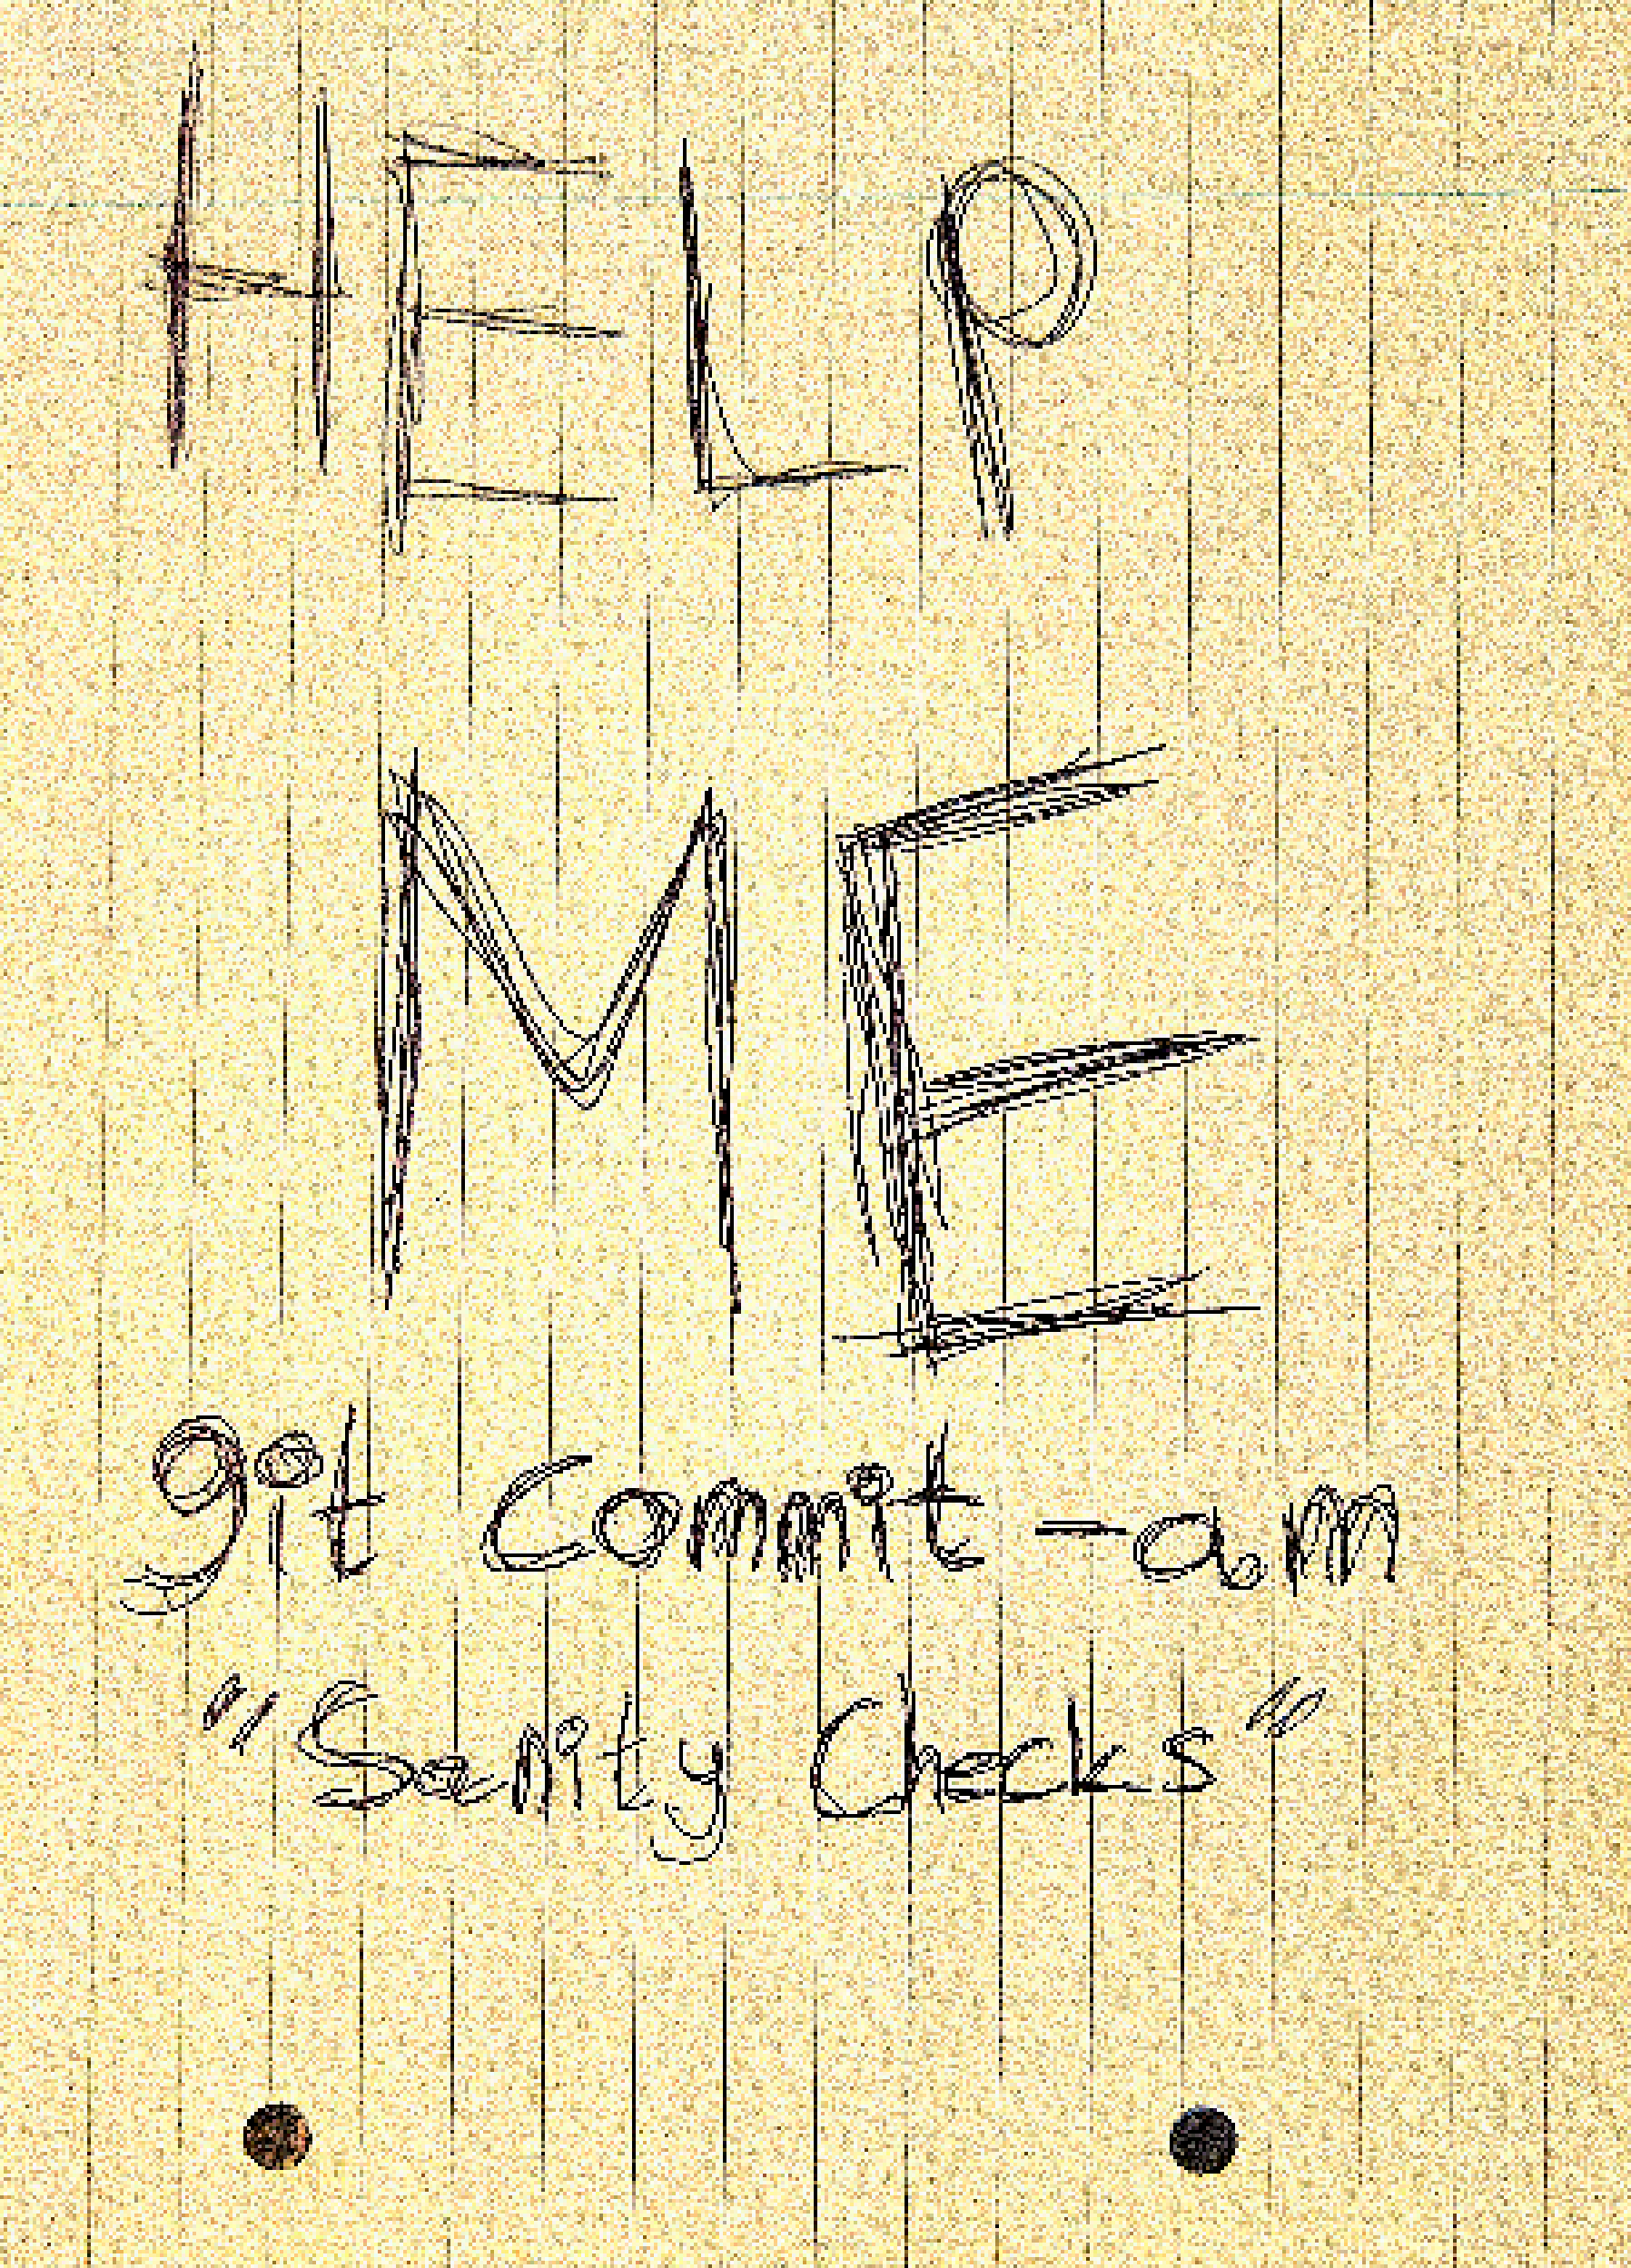 HELP
ME
git Commit -am
"Sanity Checks"